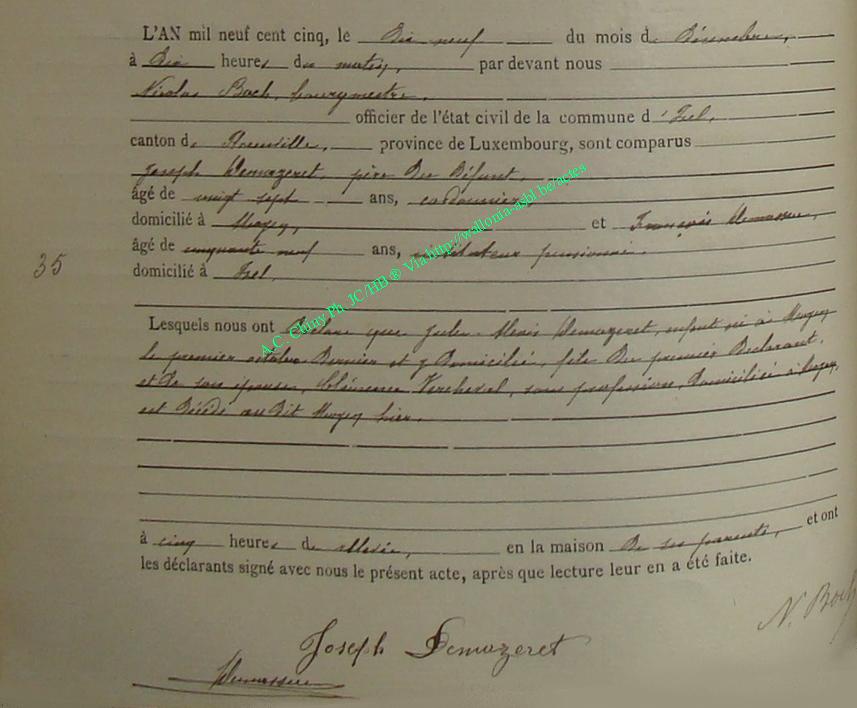 L'AN mil neuf cent cinq, le Dix neuf du mois de Décembre,
à Dix heures du matin, par devant nous
Nicolas Bach, bourgmestre,
officier de l'état civil de la commune d'Izel,
canton de Florenville, province de Luxembourg, sont comparus
Joseph Demazeret, père du Défunt,
âgé de vingt sept ans, cordonnier,
domicilié à Moyen, et François Demasseu,
âgé de cinquante neuf ans, instituteur pensionné
35
domicilié à Izel,
Lesquels nous ont Déclaré que Jules Alexis Demazeret, enfant né à Moyen
le premier octobre Dernier et y Domicilié, fils du premier Déclarant,
et de son épouse, Clémence Vercheval, sans profession, Domiciliée à Moyen,
est Décédé au Dit Moyen hier,
à cinq heures de relevée, en la maison de ses parents, et ont
les déclarants signé avec nous le présent acte, après que lecture leur en a été faite.
N. Bach
Joseph Demazeret
Demasseu
A.C. Chiny Ph JC/HB ® Via http://wallonia-asbl.be/actes